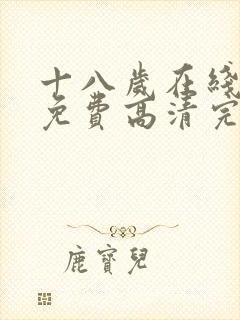 十八歲在綫
免費高清完
鹿寶兒